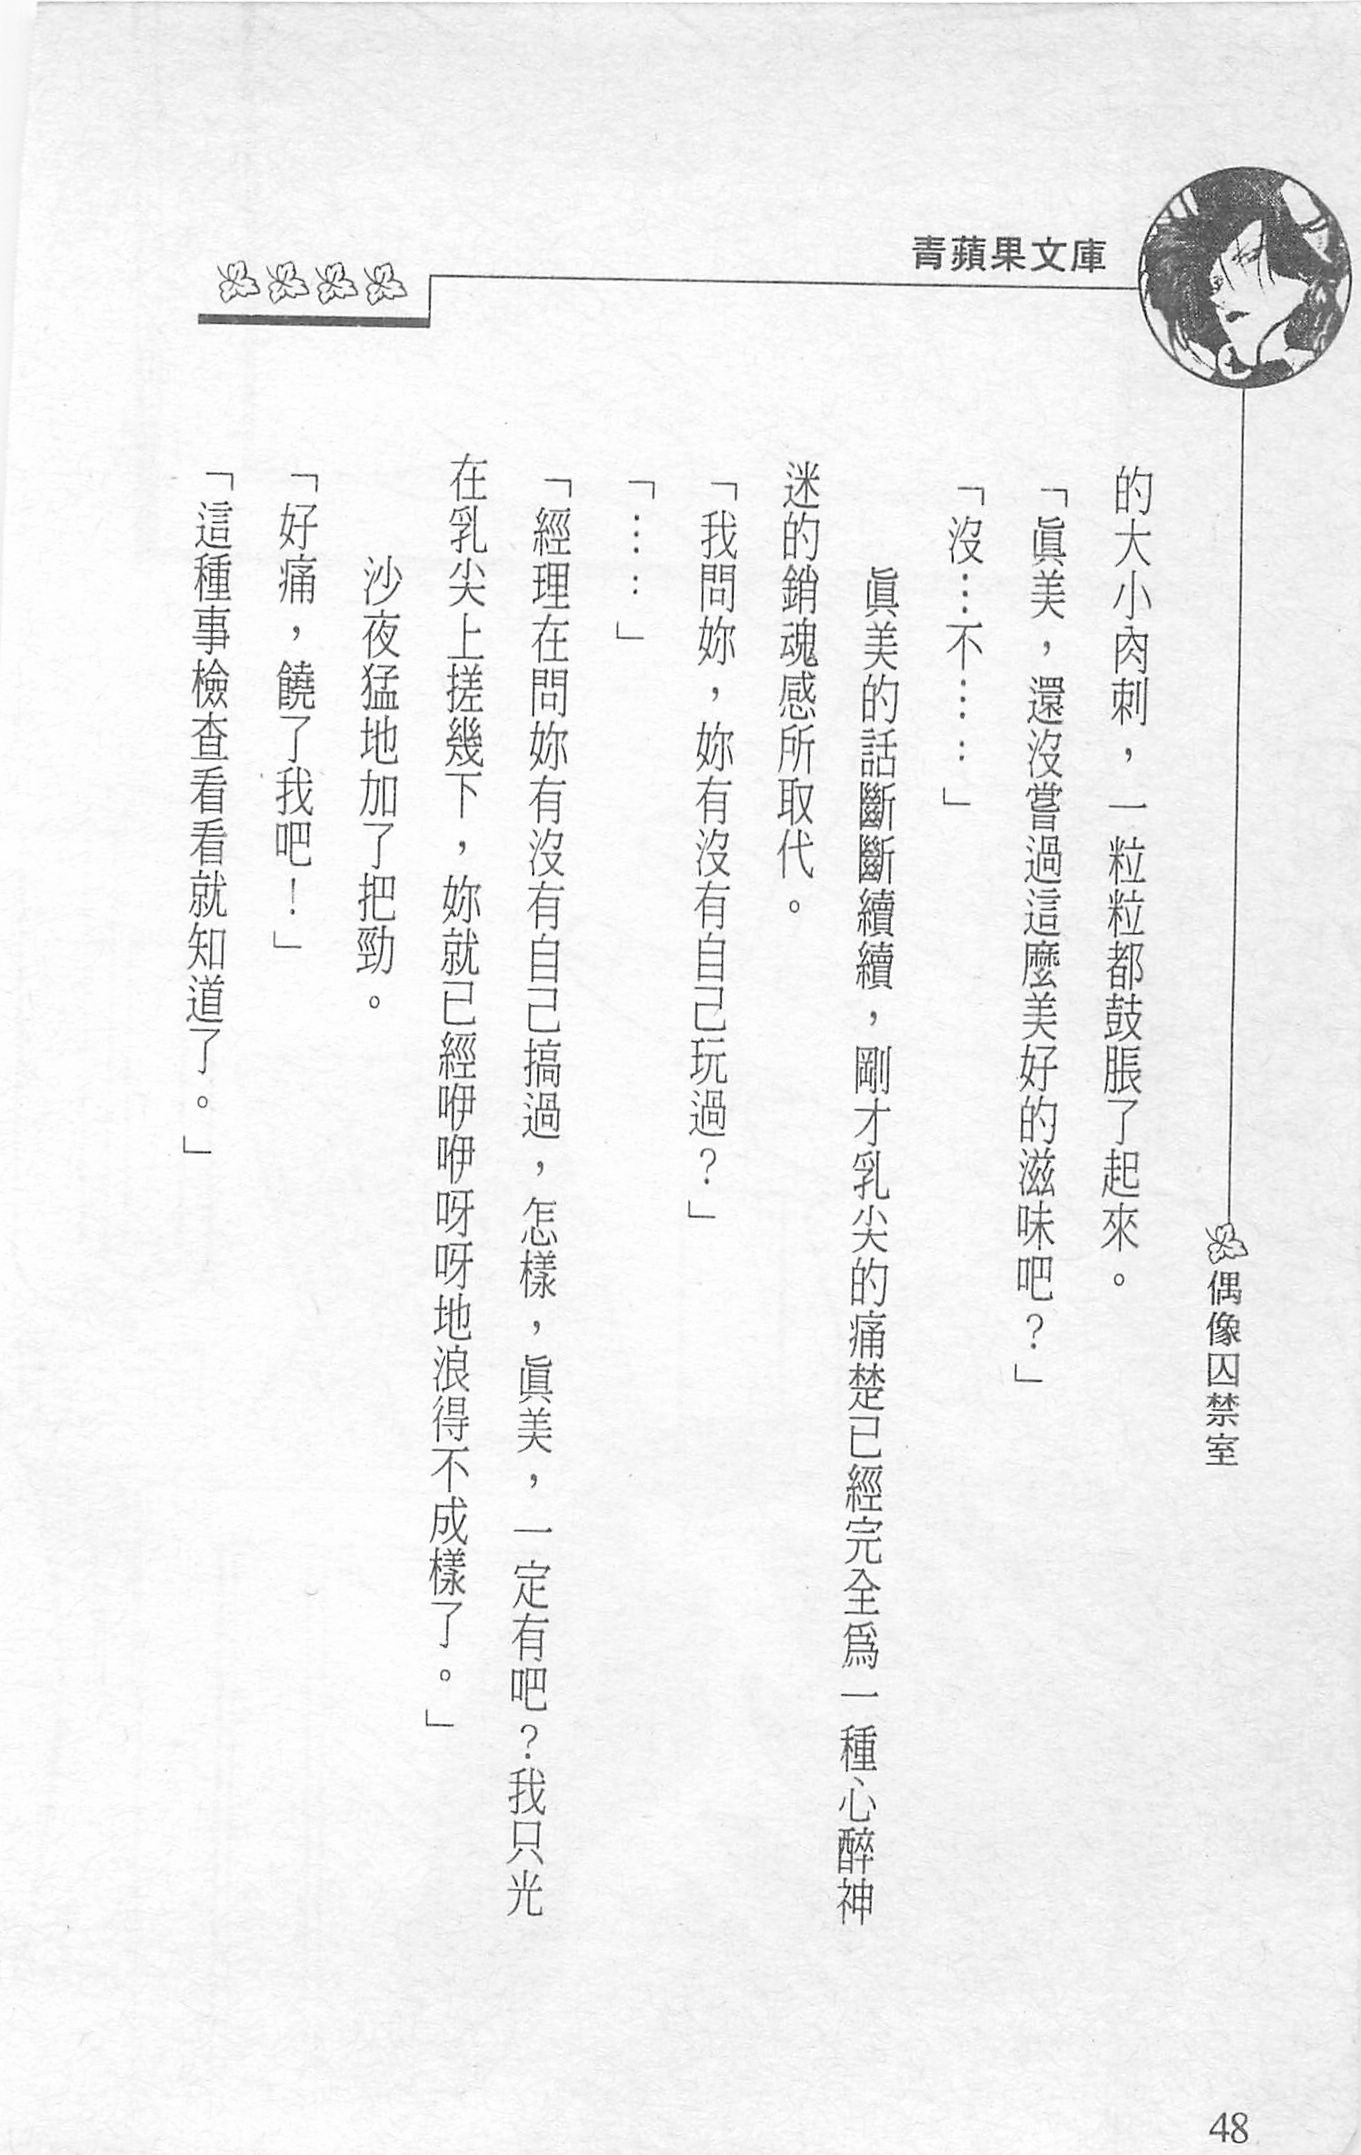 青蘋果文庫
偶像囚禁室
的大小肉刺，一粒粒都鼓脹了起來。
「眞美，還沒嘗過這麼美好的滋味吧？」
「沒…不……」
眞美的話斷斷續續，剛才乳尖的痛楚已經完全爲一種心醉神
迷的銷魂感所取代。
「我問妳，妳有沒有自己玩過？」
「……」
「經理在問妳有沒有自己搞過，怎樣，眞美，一定有吧？我只光
在乳尖上搓幾下，妳就已經咿咿呀呀地浪得不成樣了。」
沙夜猛地加了把勁。
「好痛，饒了我吧！」
「這種事檢查看看就知道了。」
48